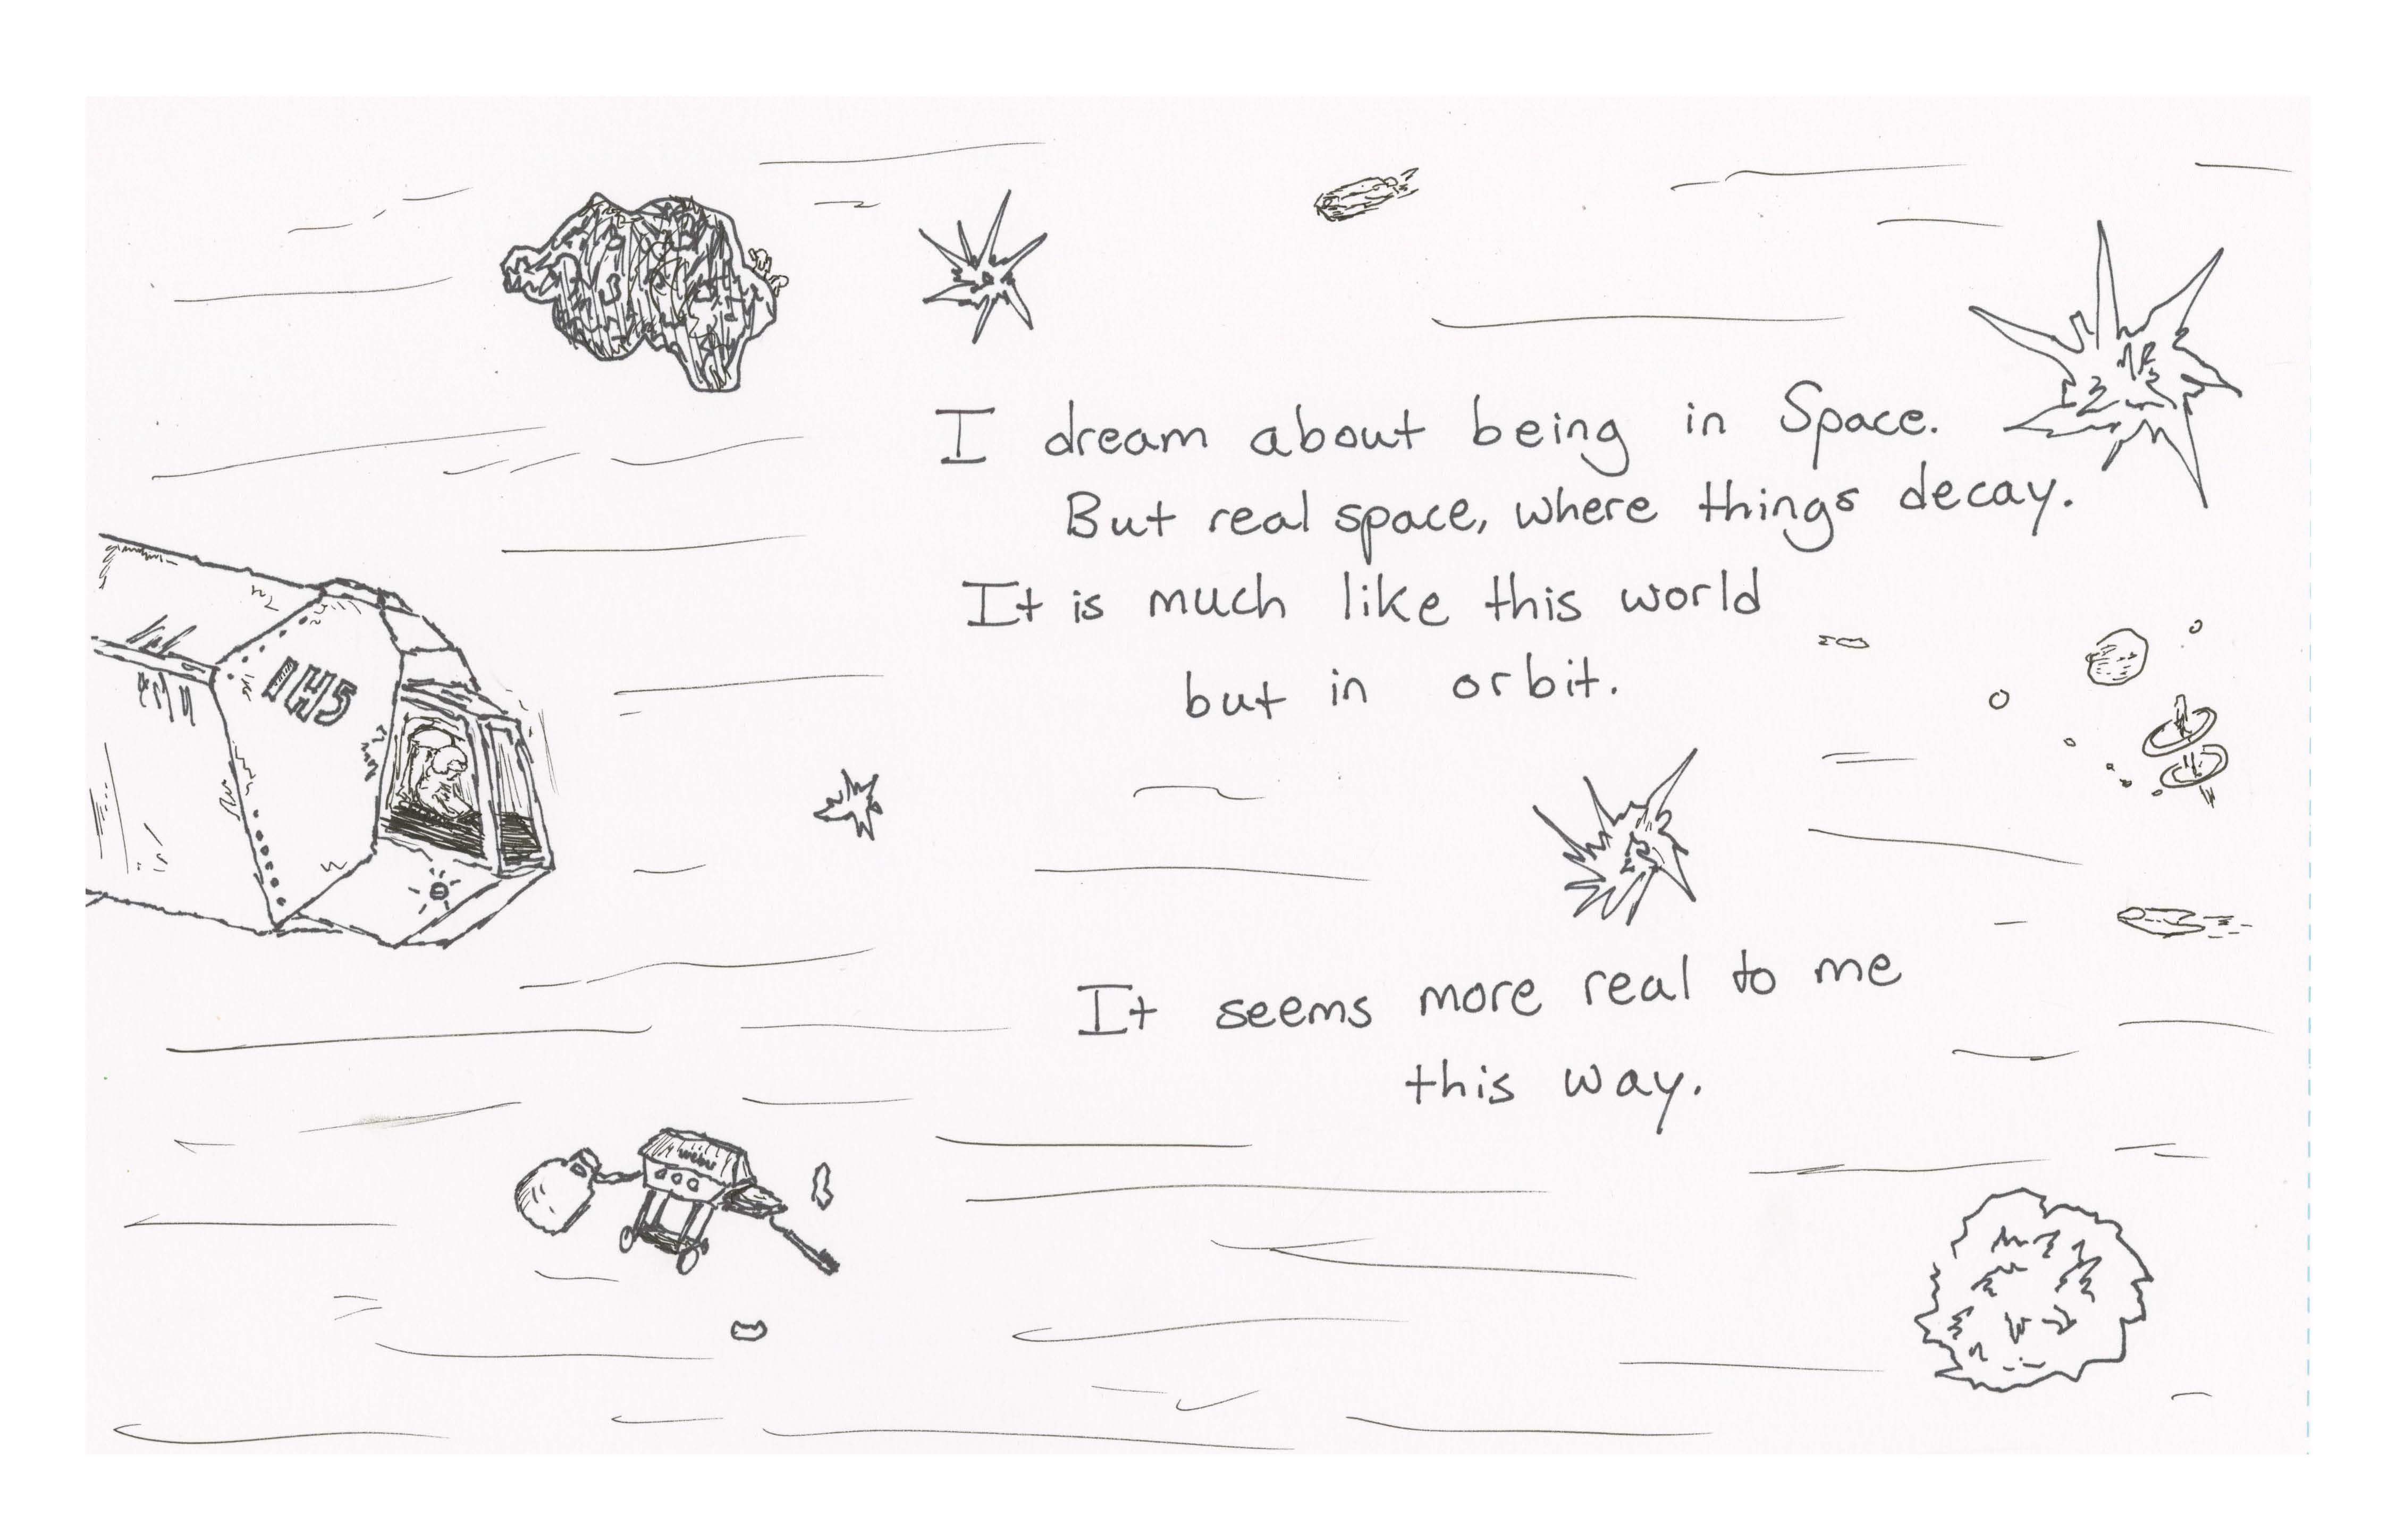 I dream about being in Space.
But real space, where things decay.
It is much like this world
but in orbit.
It seems more real to me
this way.